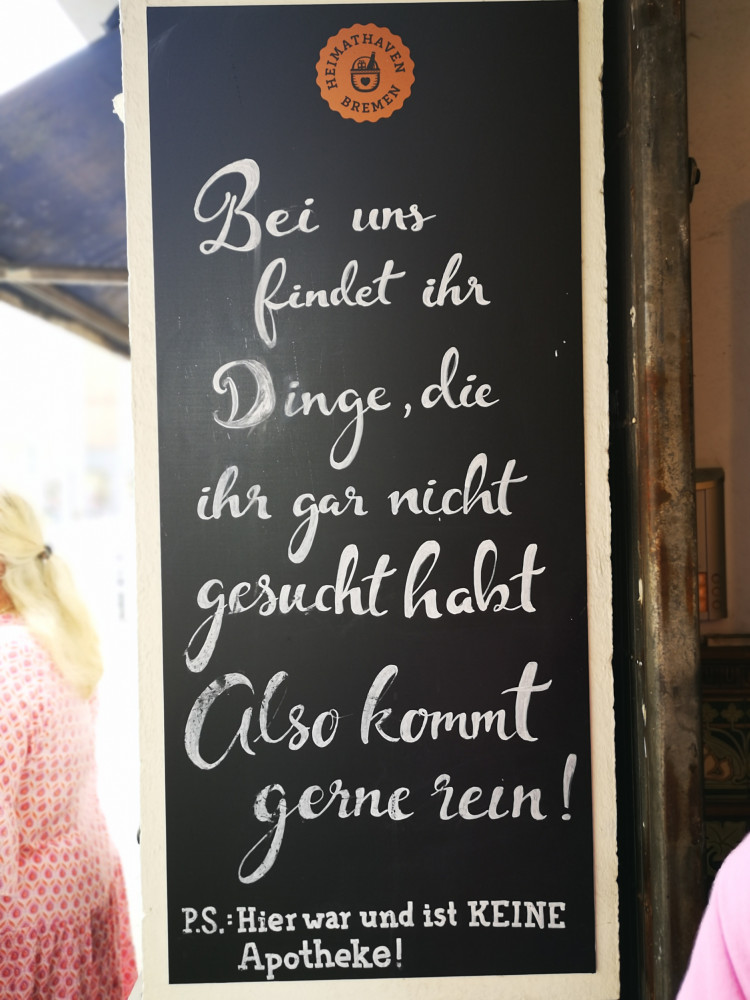 HEIMATHAVEN
BREMEN
Bei uns
findet ihr
Dinge, die
ihr gar nicht
gesucht habt
Also kommt
gerne rein!
P.S.: Hier war und ist KEINE
Apotheke!